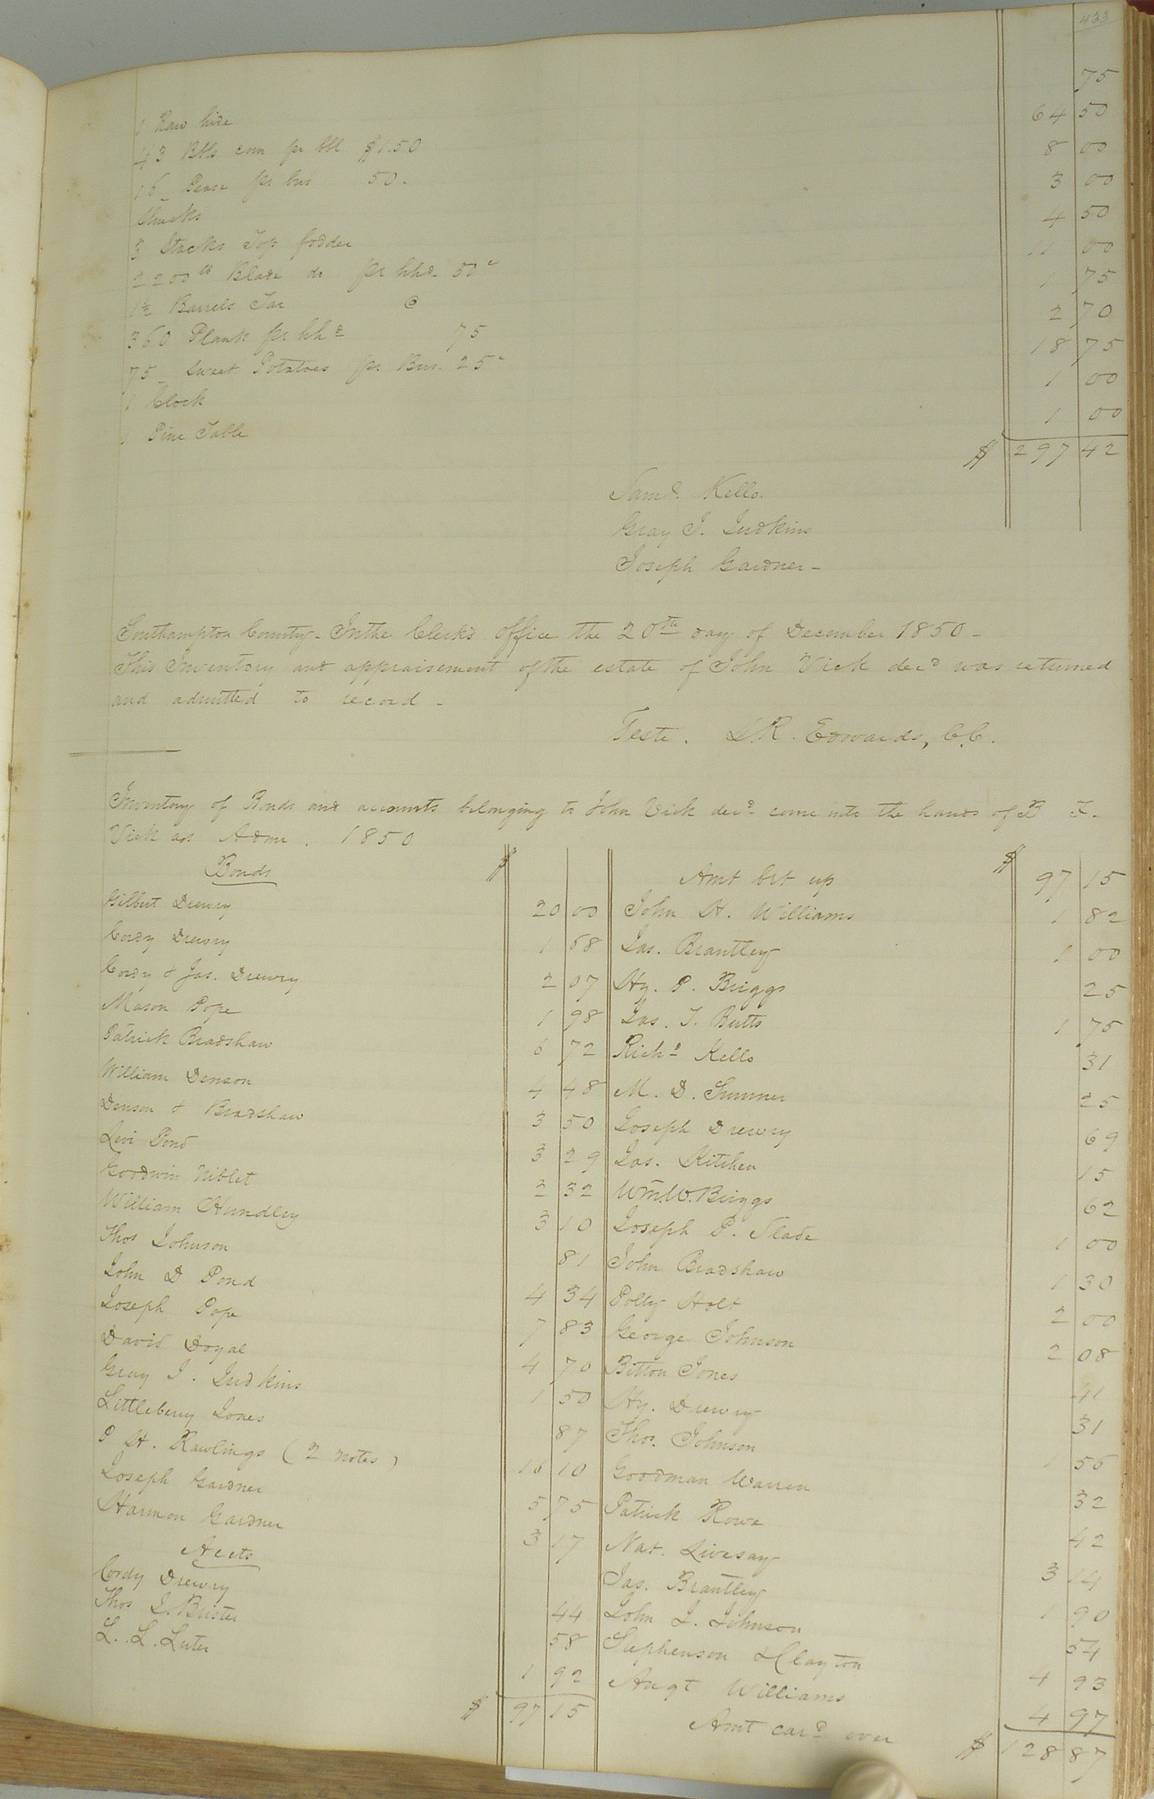 433
1 Raw hide 75
43 Bbls corn pr bbl $1.50 64 50
16 Pease pr bus 50. 8 00
Shucks 3 00
3 Stacks Top fodder 4 50
2200 lb Blade do pr hhd 50c 11 00
1½ Barrels Tar @ 1 75
360 Plank pr hhd 75 2 70
75 Sweet Potatoes pr Bus. 25c 18 75
1 Clock 1 00
1 Pine Table 1 00
$ 297 42
Samd. Kello.
Gray J. Judkins
Joseph Gardner -
Southampton County - In the Clerk's office the 20th day of December 1850 -
This Inventory and appraisement of the estate of John Vick decd was returned
and admitted to record -
Teste. L R. Edwards, C.C.
Inventory of Bonds and accounts belonging to John Vick decd. come into the hands of B F.
Vick as Admr. 1850
Bonds $
Gilbert Drewry 20 00
Cordy Drewry 1 68
Cordy & Jas. Drewry 2 07
Mason Pope 1 98
Patrick Bradshaw 6 72
William Denson 4 48
Denson & Bradshaw 3 50
Levi Pond 3 29
Goodwin Niblet 2 32
William Hundley 3 10
Thos Johnson 81
John D Pond 4 34
Joseph Pope 7 83
David Doyal 4 70
Gray J. Judkins 1 50
Littleberry Jones 87
P H. Rawlings (2 notes) 16 10
Joseph Gardner 5 75
Harmon Gardner 3 17
Accts
Cordy Drewry 44
Thos J. Brister 58
L. L. Luter 1 92
$ 97 15
Amt brt up $ 97 15
John H. Williams 1 82
Jas. Brantley 1 00
Hy. P. Briggs 25
Jas. T. Butts 1 75
Richd Kello 31
M. D. Sumner 25
Joseph Drewry 69
Jas. Kitchen 15
Wm. W. Briggs 62
Joseph P. Slade 1 00
John Bradshaw 1 30
Polly Holt 2 00
George Johnson 2 08
Bitton Jones 41
Hy. Drewry 31
Thos. Johnson 1 56
Goodman Warren 32
Patrick Rowe 42
Nat. Livesay 3 14
Jas. Brantley 1 90
John J. Johnson 54
Stephenson & Clayton 4 93
Augt Williams 4 97
Amt card over $ 128 87